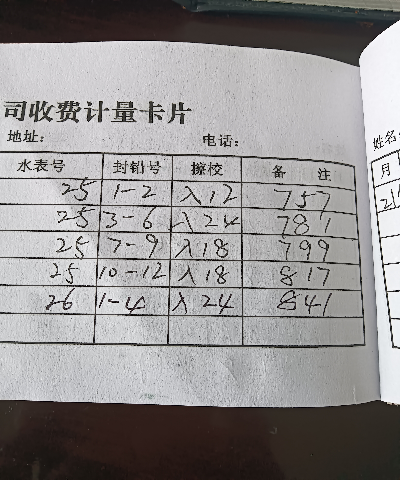 司收费计量卡片
地址： 电话：
水表号 封铅号 擦校 备 注
25 1-2 入12 757
25 3-6 入24 781
25 7-9 入18 799
25 10-12 入18 817
26 1-4 入24 841
姓名：
月